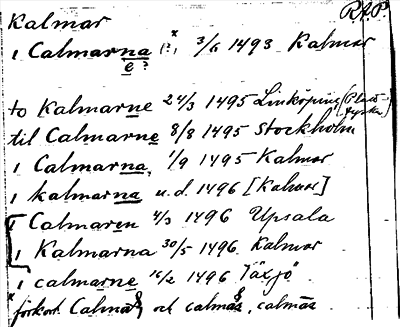 Kalmar R.A.P.
i Calmarna (?) 3/6 1493 Kalmar
e?
to Kalmarne 24/3 1495 Linköping
til Calmarne 8/8 1495 Stockholm
i Calmarna, 1/9 1495 Kalmar
i Kalmarna u.d. 1496 [Kalmar]
i Calmaren 4/3 1496 Upsala
i Kalmarna 30/5 1496 Kalmar
i calmarne 16/2 1496 Växjö
x förkort. Calma och calma, calmās